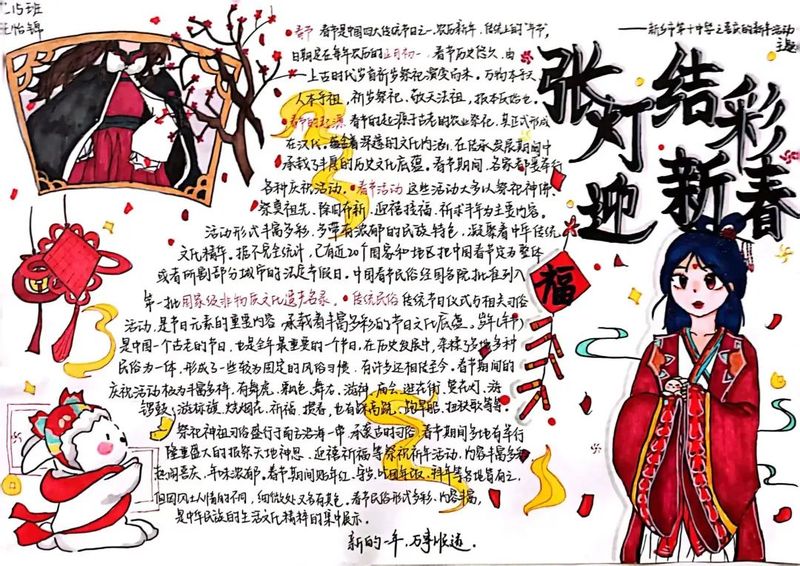 215班
王怡锦
——新乡市第十中学之喜庆的新年活动
主题
张灯结彩
迎新春
福
春节 春节是中国四大传统节日之一，农历新年，传统上的“年节”，
日期是在每年农历的正月初一。春节历史悠久，由
上古时代岁首祈岁祭祀演变而来，万物本乎天
人本乎祖，祈岁祭祀、敬天法祖，报本反始也。
春节的起源 春节的起源于古老的农业祭祀，真正形成
在汉代，蕴含着深邃的文化内涵，在传承发展期间中
承载了丰厚的历史文化底蕴。春节期间，各家都要举行
各种庆祝活动。春节活动 这些活动大多以祭祀神佛、
祭奠祖先、除旧布新、迎禧接福、祈求丰年为主要内容。
活动形式丰富多彩，多带有浓郁的民族特色。凝聚着中华传统
文化精华。据不完全统计，已有近20个国家和地区把中国春节定为整体
或者所割部分城市的法定节假日。中国春节民俗经国务院批准列入
第一批国家级非物质文化遗产名录。传统民俗 传统节日仪式与相关习俗
活动，是节日元素的重要内容，承载着丰富多彩的节日文化底蕴。岁年(年节)
是中国一个古老的节日，也是全年最重要的一个节日，在历史发展中，杂揉了多地多种
民俗为一体，形成了一些较为固定的风俗习惯，有许多还相传至今。春节期间的
庆祝活动极为丰富多样，有舞狮、飘色、舞龙、游神、庙会、逛花街、赏花灯、游
锣鼓、游标旗、烧烟花、祈福、掼春，也有踩高跷、跑旱船、扭秧歌等等。
祭祀神祖习俗盛行于南方沿海一带，承袭古时习俗，春节期间多地有举行
隆重盛大的报祭天地神恩、迎禧祈福等祭祝祈年活动，内容丰富多彩
热闹喜庆，年味浓郁。春节期间贴年红、守岁、吃团年饭、拜年等各地皆有之，
但因风土人情的不同，细微处又各有其色。春节民俗形式多彩、内容丰富，
是中华民族的生活文化精粹的集中展示。
新的一年，万事顺遂。